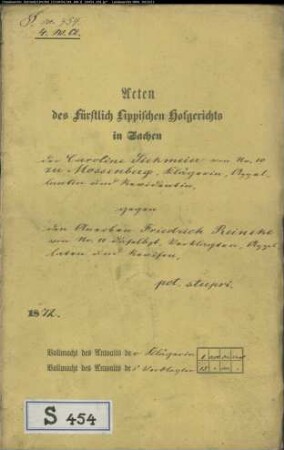 S. no. 454.
4. M. A.
Acten
des Fürstlich Lippischen Hofgerichts
in Sachen
der Caroline von No. 10
zu Mossenberg, Klägerin, Appel-
lantin und Revidentin,
gegen
den Friedrich Reineke
von No. 11 daselbst, Verklagten, Appel-
laten und Revisen,
pct. stupri.
1872.
Vollmacht des Anwalts der Klägerin
Vollmacht des Anwalts des Verklagten
S 454